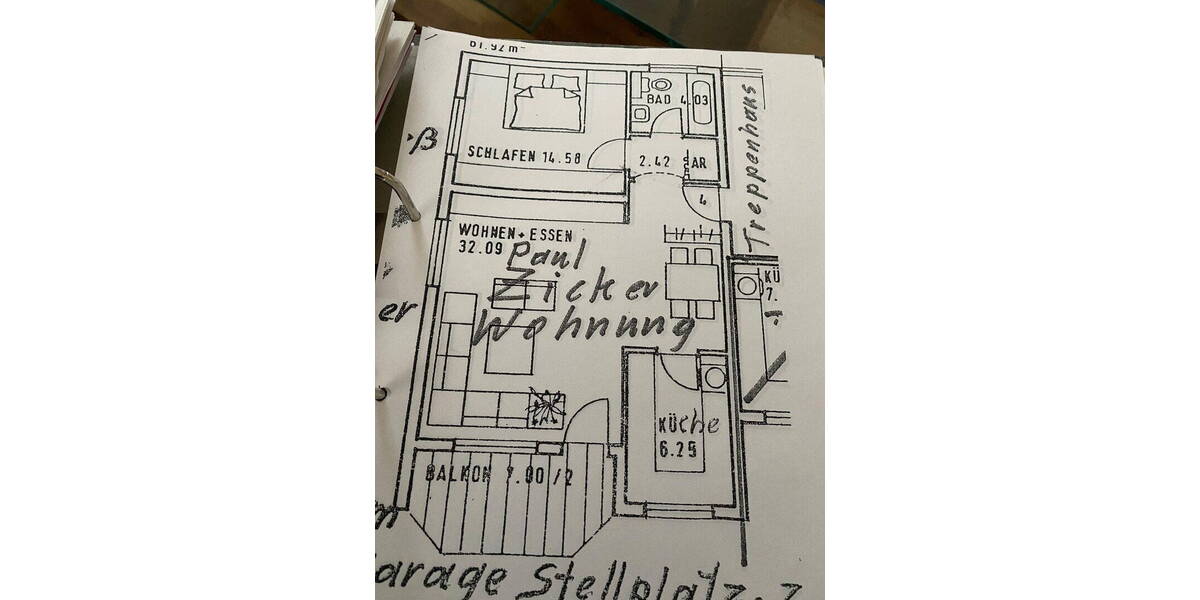 61.92 m²
BAD 4.03
SCHLAFEN 14.58
2.42 AR
4
Treppenhaus
ß
WOHNEN + ESSEN
32.09
Paul
Zicker
Wohnung
er
KÜ
7.
KÜche
6.25
BALKON 7.00 /2
m
arage Stellplatz